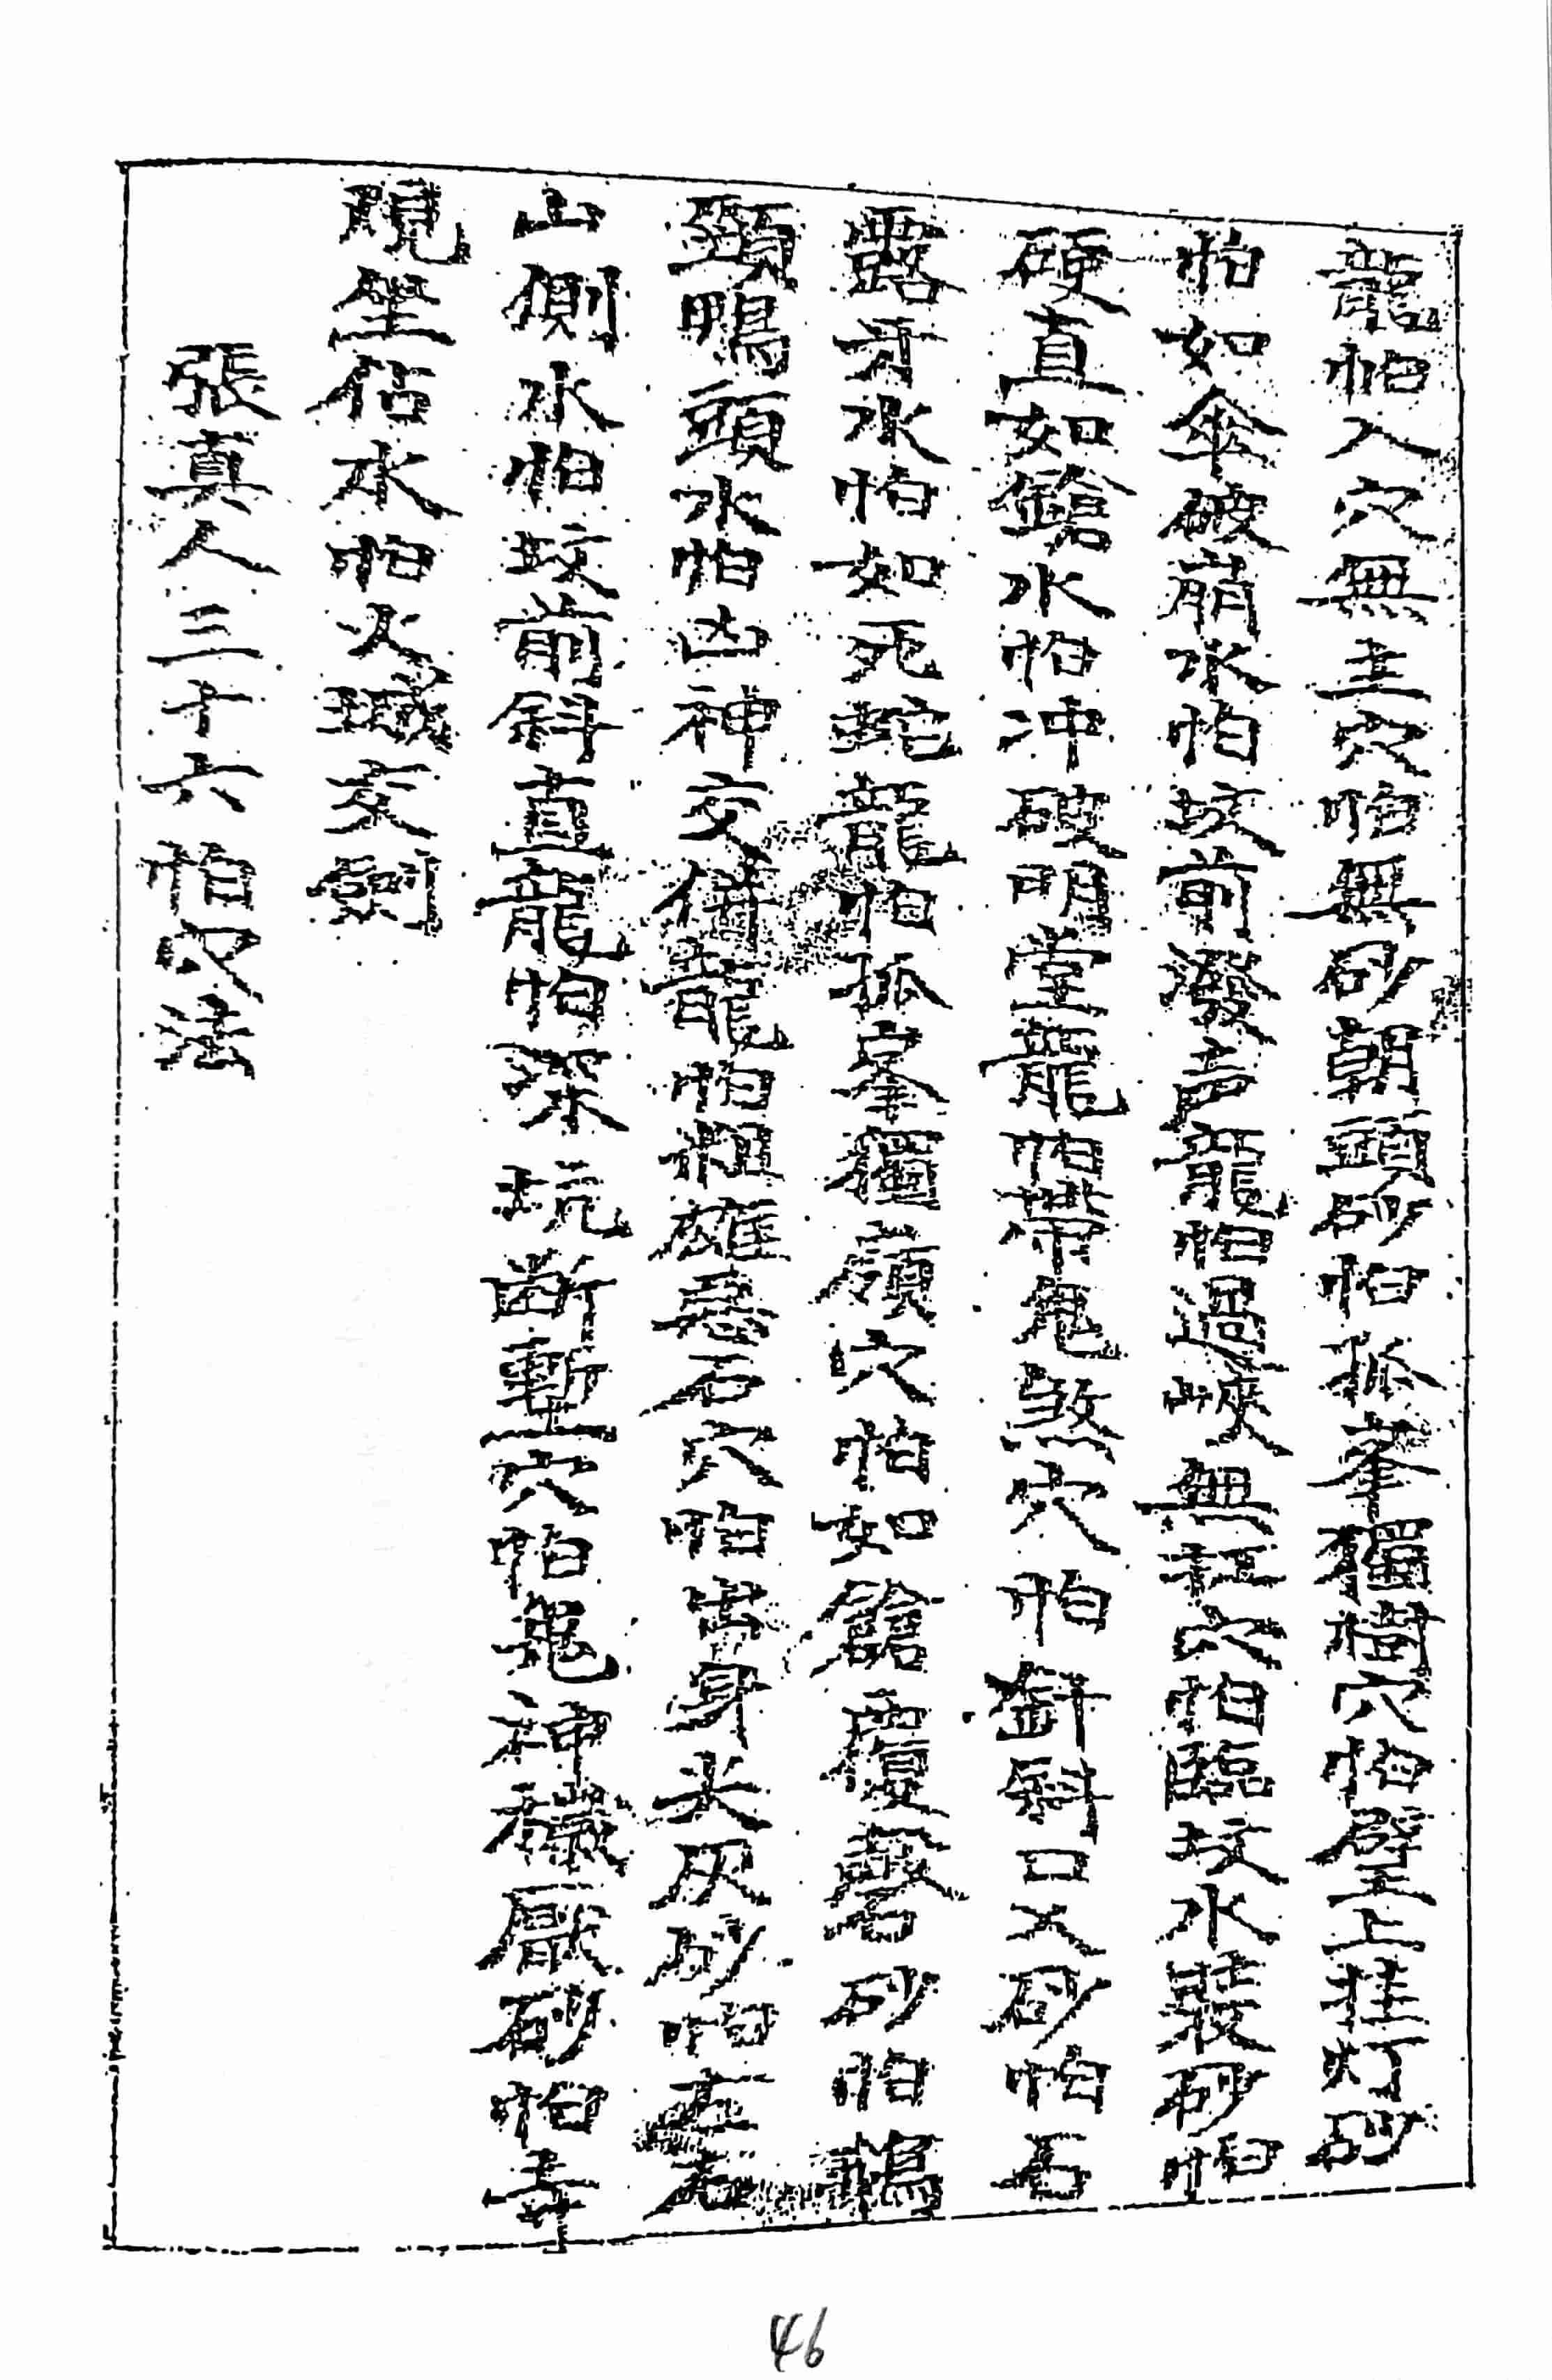 龍怕入穴無主穴怕無砂朝頭砂怕孤峯獨樹穴怕壁上掛灯砂
怕如傘破崩水怕坟前潑声龍怕過峽無扛穴怕臨坟水裁砂怕
硬直如鎗水怕冲破明堂龍怕帶鬼煞穴怕斜斜口又砂怕石
露牙水怕如死蛇龍怕孤峯獨嶺穴怕如鎗廈磬砂怕鵝
頸鴨頭水怕凶神交併龍怕粗雄惡石穴怕害身尖尿砂怕左右
山側水怕坟前斜直龍怕深坑断塹穴怕鬼神藏厭砂怕青
龍坐佔水怕火城交劍
張真人三十六怕穴法
46